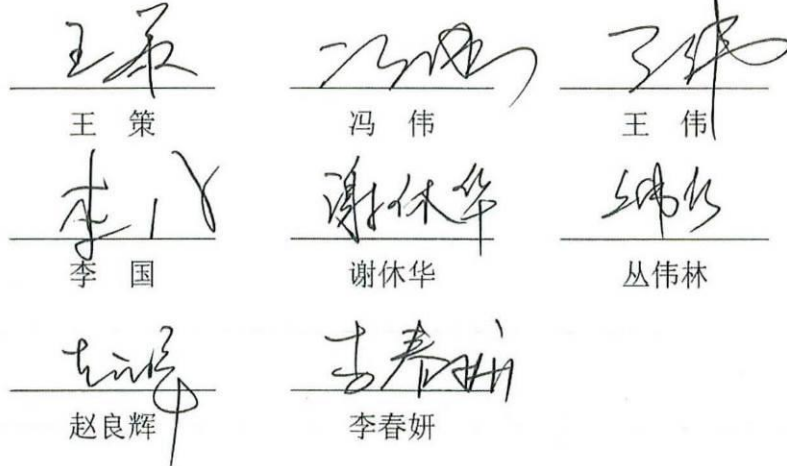 王 策 冯 伟 王 伟
李 国 谢休华 丛伟林
赵良辉 李春妍